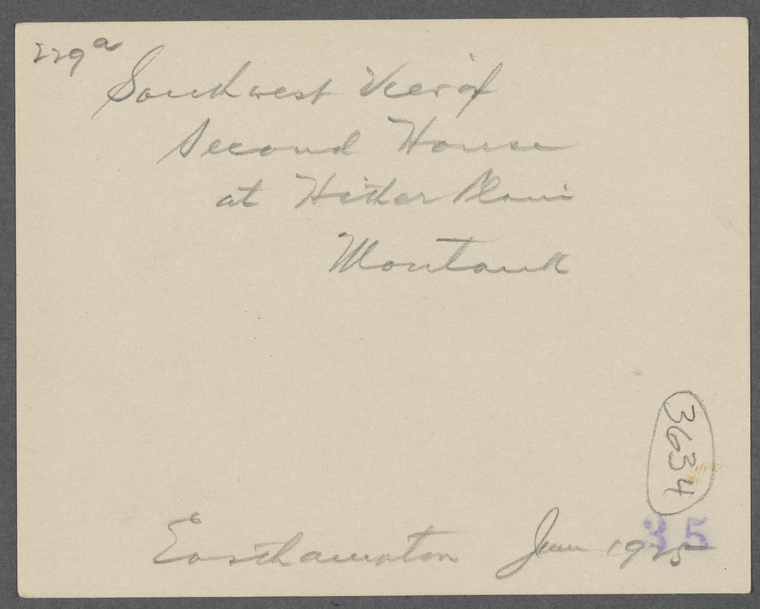 229a
Southwest View of
Second House
at Hither Plain
Montauk
3634
Easthampton June 1925
35